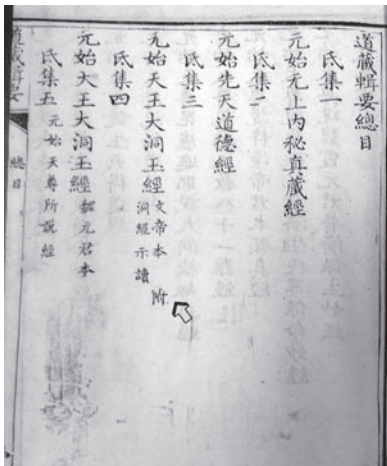 道藏輯要總目
氐集一
元始无上內秘真藏經
氐集二
元始先天道德經
氐集三
元始天王大洞玉經 文帝本 附
洞經示讀
氐集四
元始大王大洞玉經 魏元君本
氐集五 元始天尊所說經
道藏輯要 總目